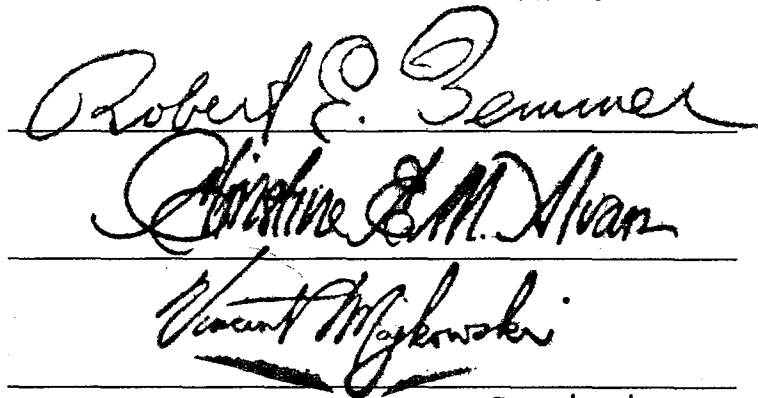 Robert E. Temmer
Christine E. M. Alvarz
Vincent Majkowski